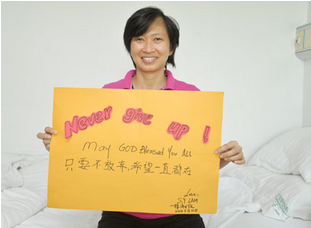 Never give up!
May GOD Blessed You All
只要不放弃,希望一直都在
Love
SY LAM